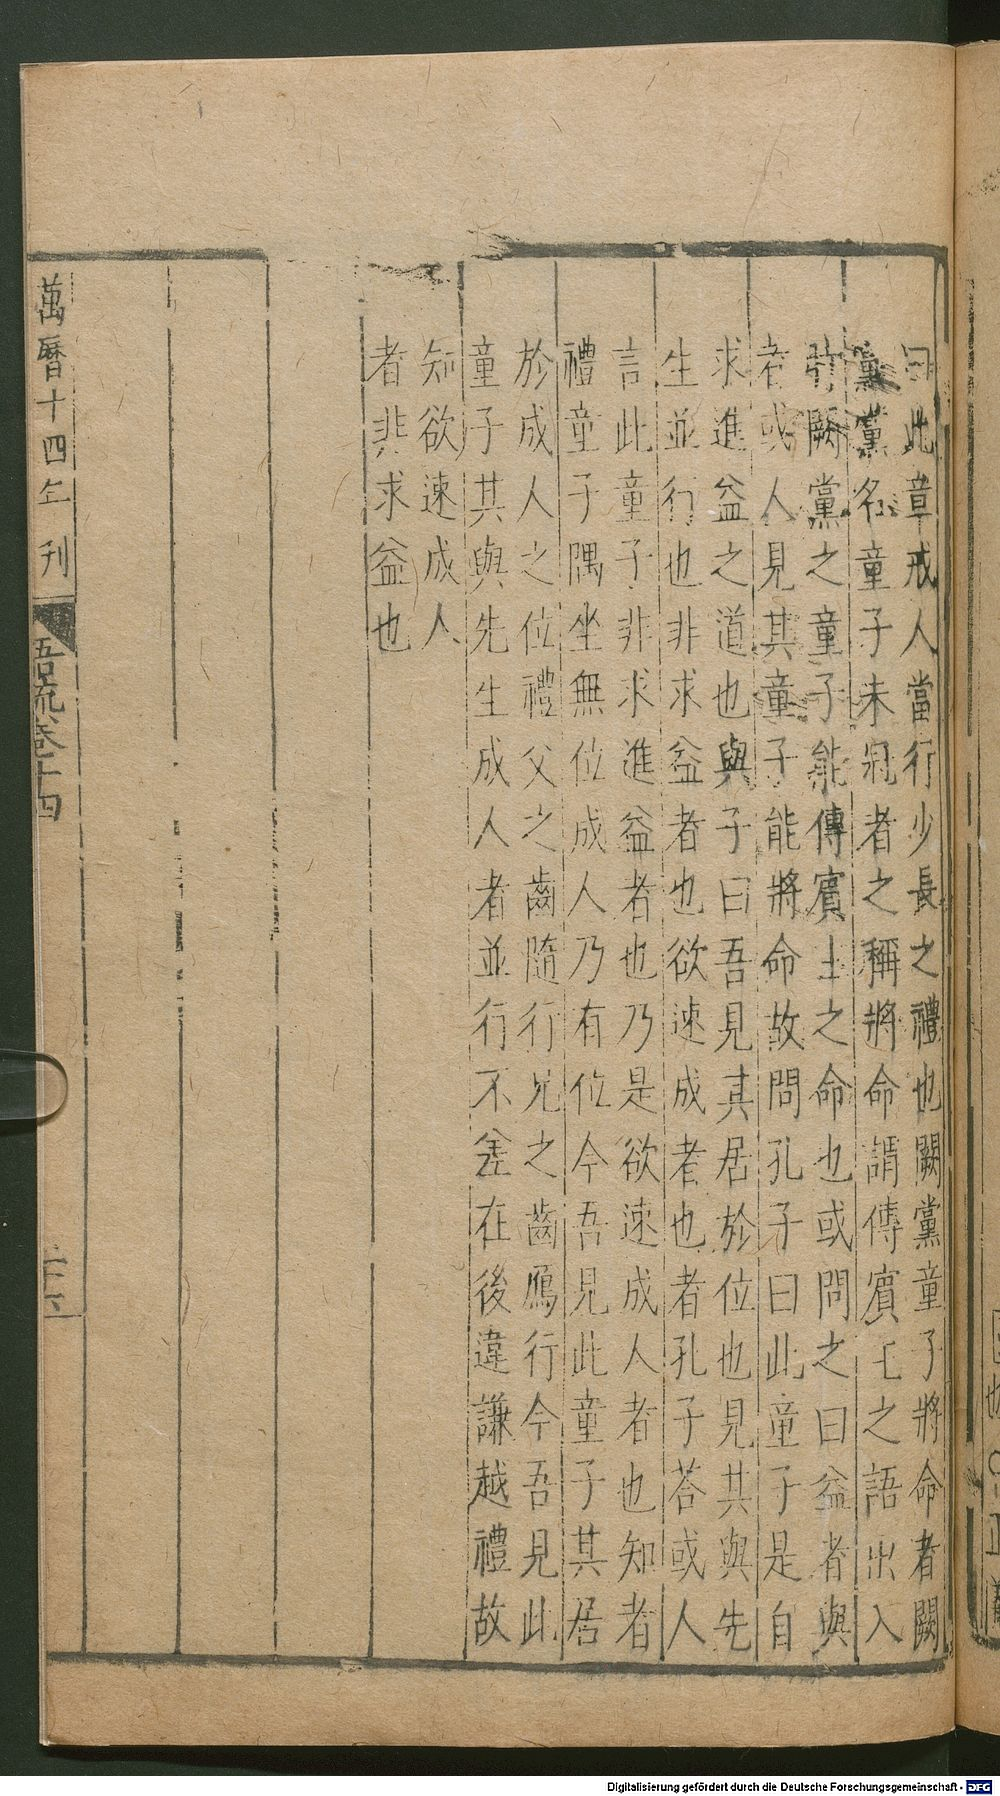 曰此章戒人當行少長之禮也闕黨童子將命者闕
黨黨名童子未冠者之稱將命謂傳賓主之語出入
時闕黨之童子能傳賓主之命也或問之曰益者與
者或人見其童子能將命故問孔子曰此童子是自
求進益之道也與子曰吾見其居於位也見其與先
生並行也非求益者也欲速成者也者孔子荅或人
言此童子非求進益者也乃是欲速成人者也知者
禮童子隅坐無位成人乃有位今吾見此童子其居
於成人之位禮父之齒隨行兄之齒鴈行今吾見此
童子其與先生成人者並行不差在後違謙越禮故
知欲速成人
者非求益也
萬曆十四年刊
語疏卷十四
Digitalisierung gefördert durch die Deutsche Forschungsgemeinschaft - DFG